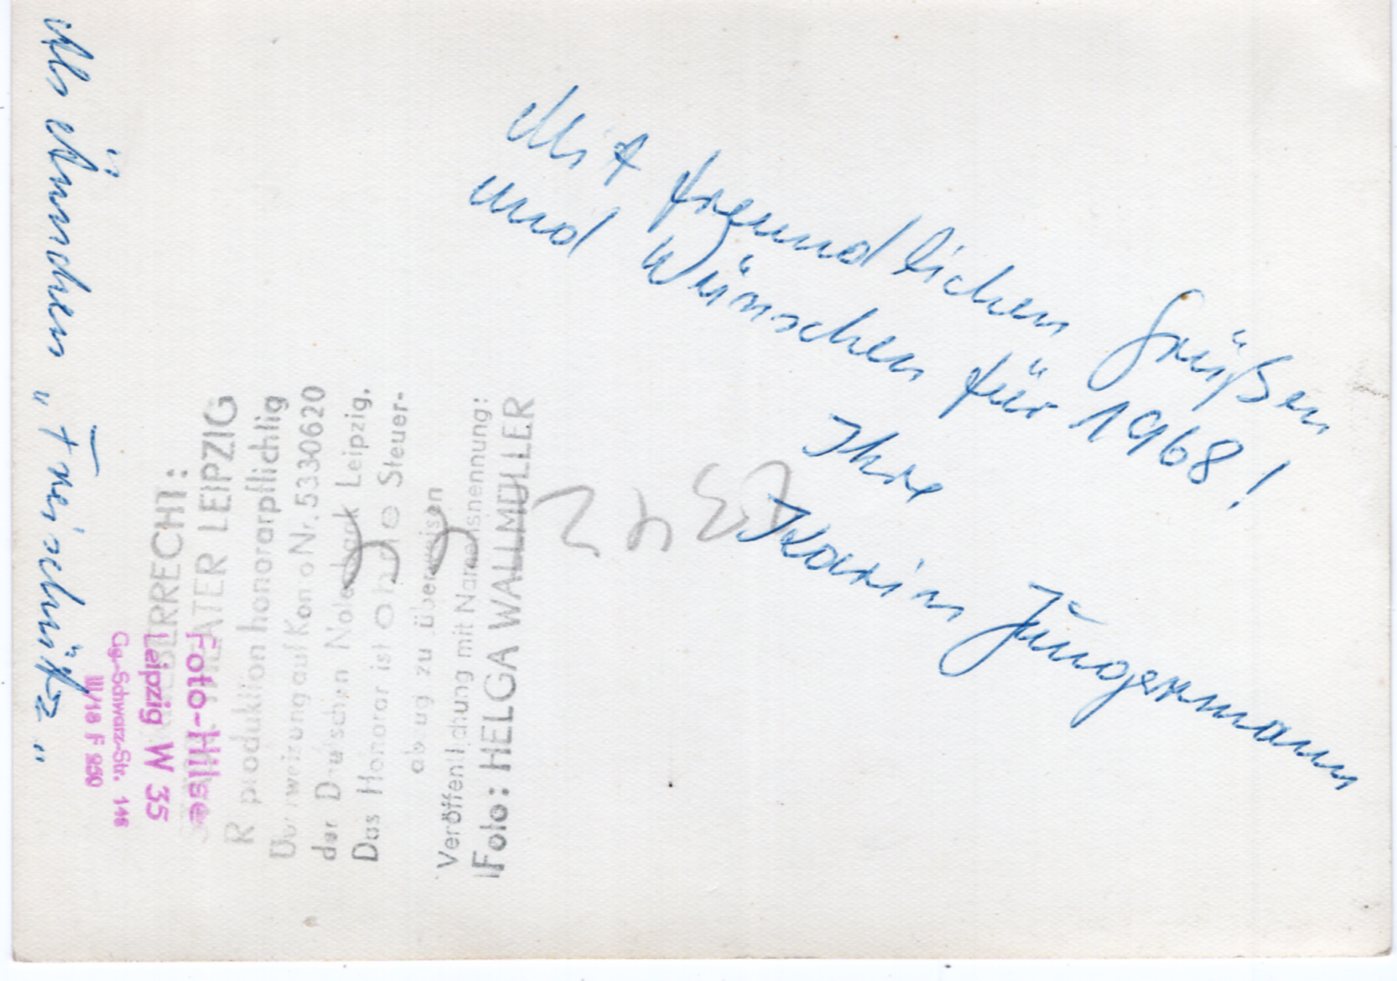 Mit freundlichen Grüßen
und Wünschen für 1968!
Ihre
Karin Jüngermann
Als Ännchen „Freischütz"
URHEBERRECHT:
THEATER LEIPZIG
Reproduktion honorarpflichtig
Überweisung auf Konto Nr. 5330620
der Deutschen Notenbank Leipzig.
Das Honorar ist ohne Steuer-
abzug zu überweisen
Veröffentlichung mit Namensnennung:
Foto: HELGA WALLMÜLLER
Foto-Hilse
Leipzig W 35
Gg.-Schwarz-Str. 146
III/18 F 250